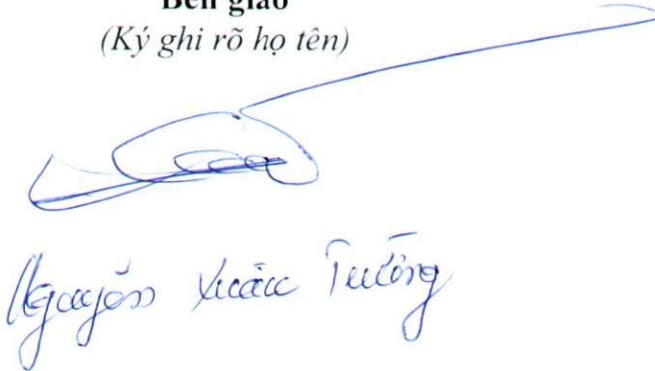 Bên giao
(Ký ghi rõ họ tên)
Nguyễn Xuân Tường